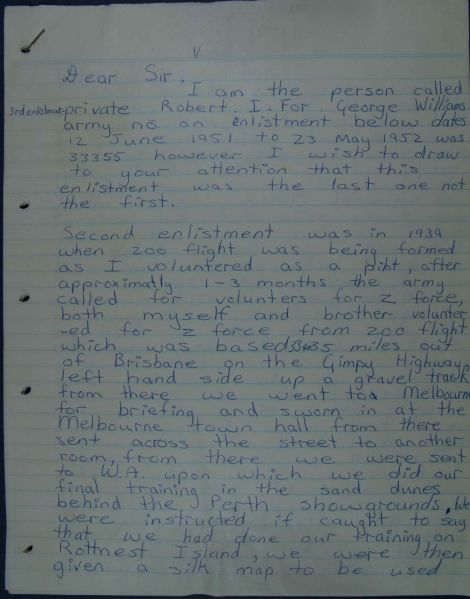 V
Dear Sir,
I am the person called
3rd enlistment private Robert. I. For George Williams
army no. on enlistment below dates
12 June 1951 to 23 May 1952 was
33355 however I wish to draw
to your attention that this
enlistment was the last one not
the first.
Second enlistment was in 1939
when 200 flight was being formed
as I voluntered as a pilot, after
approximatly 1-3 months the army
called for volunters for Z force,
both myself and brother volunter
-ed for Z force from 200 flight
which was based miles out
of Brisbane on the Gimpy Highway,
left hand side up a gravel track
from there we went too Melbourn
for briefing and sworn in at the
Melbourne town hall from there
sent across the street to another
room, from there we were sent
to W.A. upon which we did our
final training in the sand dunes
behind the Perth showgrounds, We
were instructed if caught to say
that we had done our training on
Rottnest Island, we were then
given a silk map to be used